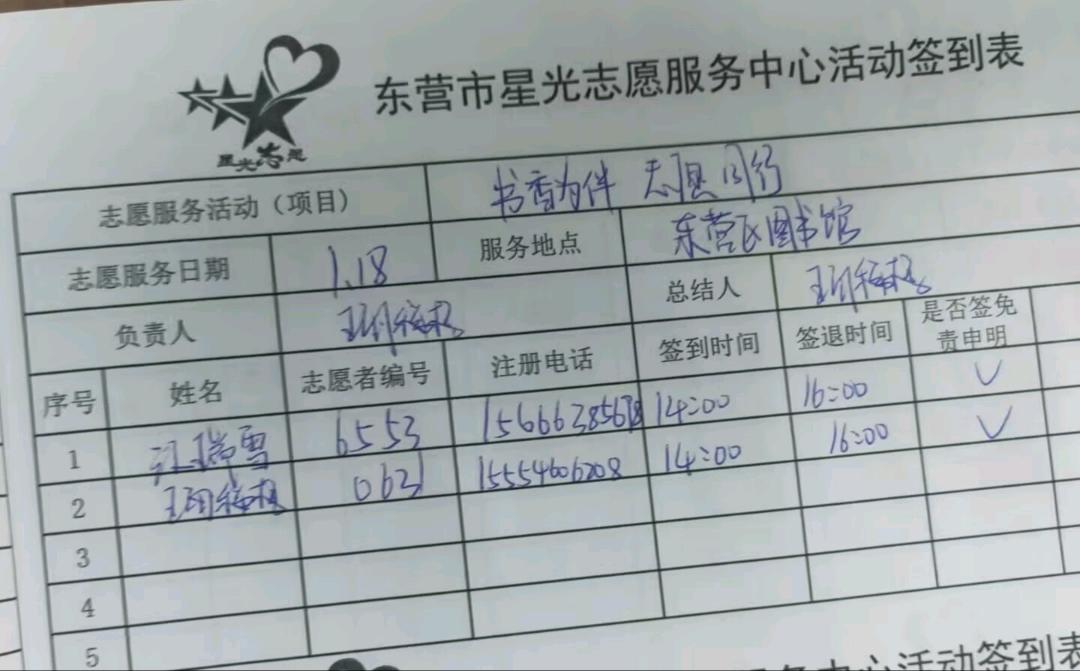 星光志愿
东营市星光志愿服务中心活动签到表
志愿服务活动（项目） 书香为伴 志愿同行
志愿服务日期 1.18 服务地点 东营区图书馆
负责人 总结人
序号 姓名 志愿者编号 注册电话 签到时间 签退时间 是否签免
责申明
1 江瑞雪 6553 14:00 16:00 √
2 0631 15554606208 14:00 16:00 √
3
4
5
服务中心活动签到表